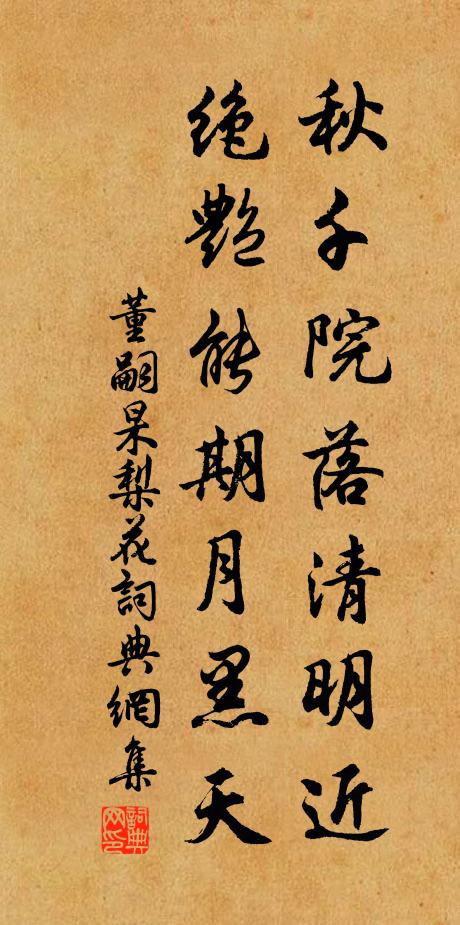 秋千院落清明近
绝艳能期月黑天
董嗣杲梨花詞典網集
詞典网印